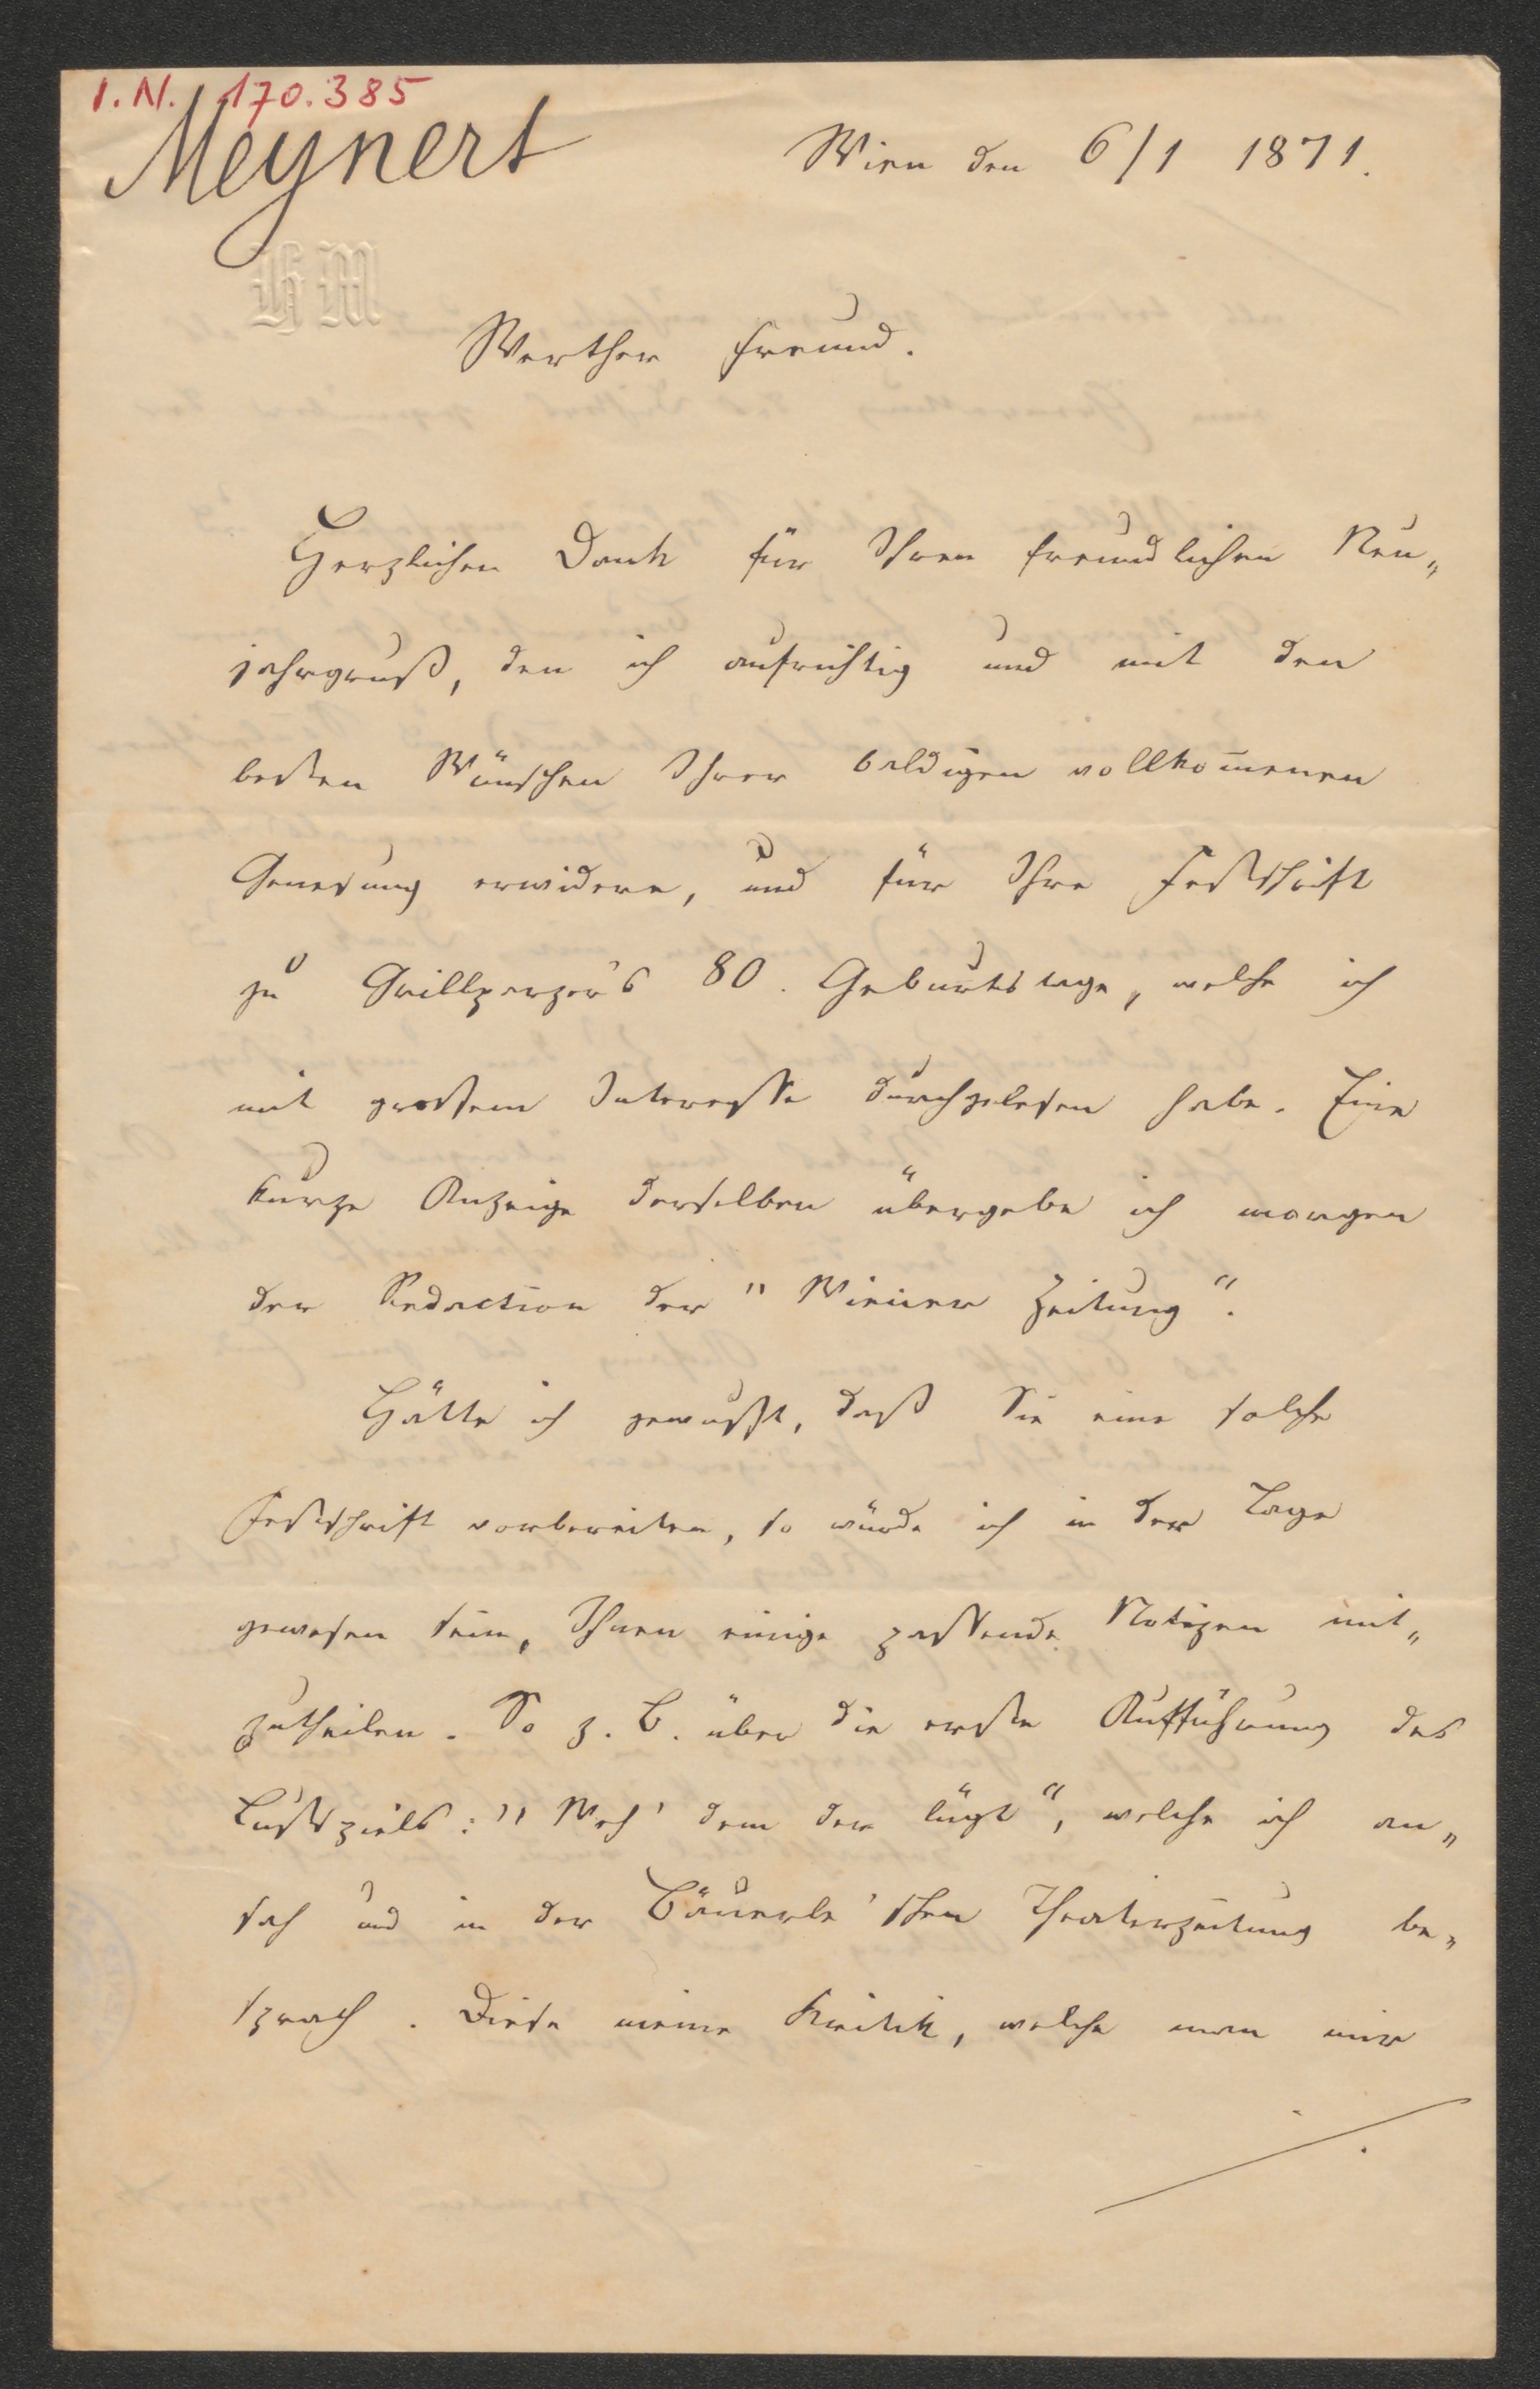 I.N. 170.385
Meynert
Wien den 6/1 1871.
HM
Werther Freund.
Herzlichen Dank für Ihren freundlichen Neu„
jahrgruß, den ich aufrichtig und mit den
besten Wünschen Ihrer baldigen vollkom̄enen
Genesung erwidere, und für Ihre Festschrift
zu Grillparzer's 80. Geburtstage, welche ich
mit großem Interesse durchgelesen habe. Eine
kurze Anzeige derselben übergebe ich morgen
der Redaction der "Wiener Zeitung".
Hätte ich gewußt, daß Sie eine solche
Festschrift vorbereiten, so würde ich in der Lage
gewesen sein, Ihnen einige passende Notizen mit„
zutheilen. So z. B. über die erste Aufführung des
Lustspiels: "Weh' dem der lügt", welche ich an„
sah und in der Bäuerle'schen Theaterzeitung be„
sprach. Diese meine Kritik, welche man mir
./.